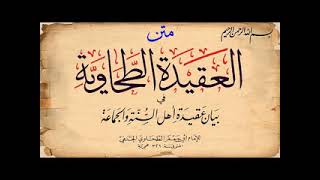 بسم الله الرحمن الرحيم
متن
العقيدة الطحاوية
في
بيان عقيدة أهل السنة والجماعة
للإمام أبي جعفر الطحاوي الحنفي